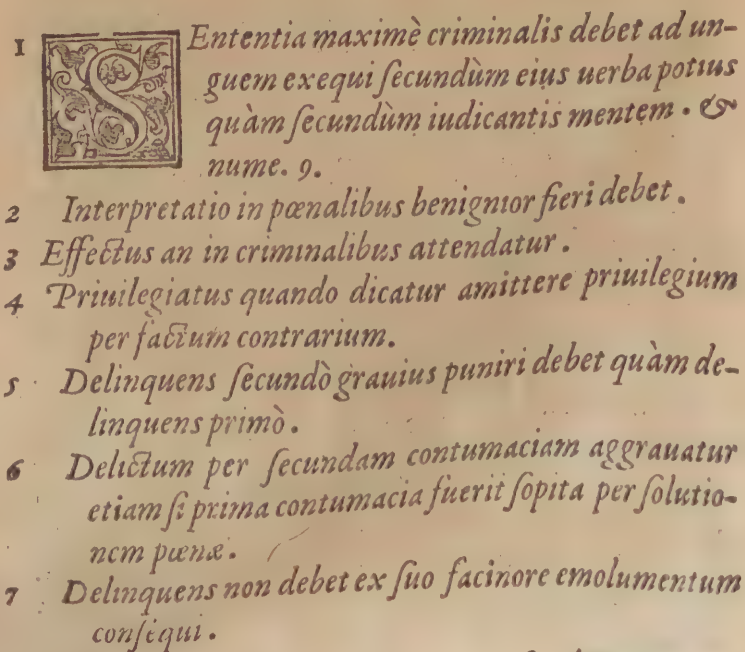 1 SEntentia maximè criminalis debet ad un-
guem exequi ſecundùm eius uerba potius
quàm ſecundùm iudicantis mentem . &
nume. 9.
2 Interpretatio in pœnalibus benignior fieri debet .
3 Effectus an in criminalibus attendatur .
4 Priuilegiatus quando dicatur amittere priuilegium
per factum contrarium.
5 Delinquens ſecundò grauius puniri debet quàm de-
linquens primò .
6 Delictum per ſecundam contumaciam aggrauatur
etiam ſi prima contumacia fuerit ſopita per ſolutio-
nem pœnæ .
7 Delinquens non debet ex ſuo facinore emolumentum
conſequi .